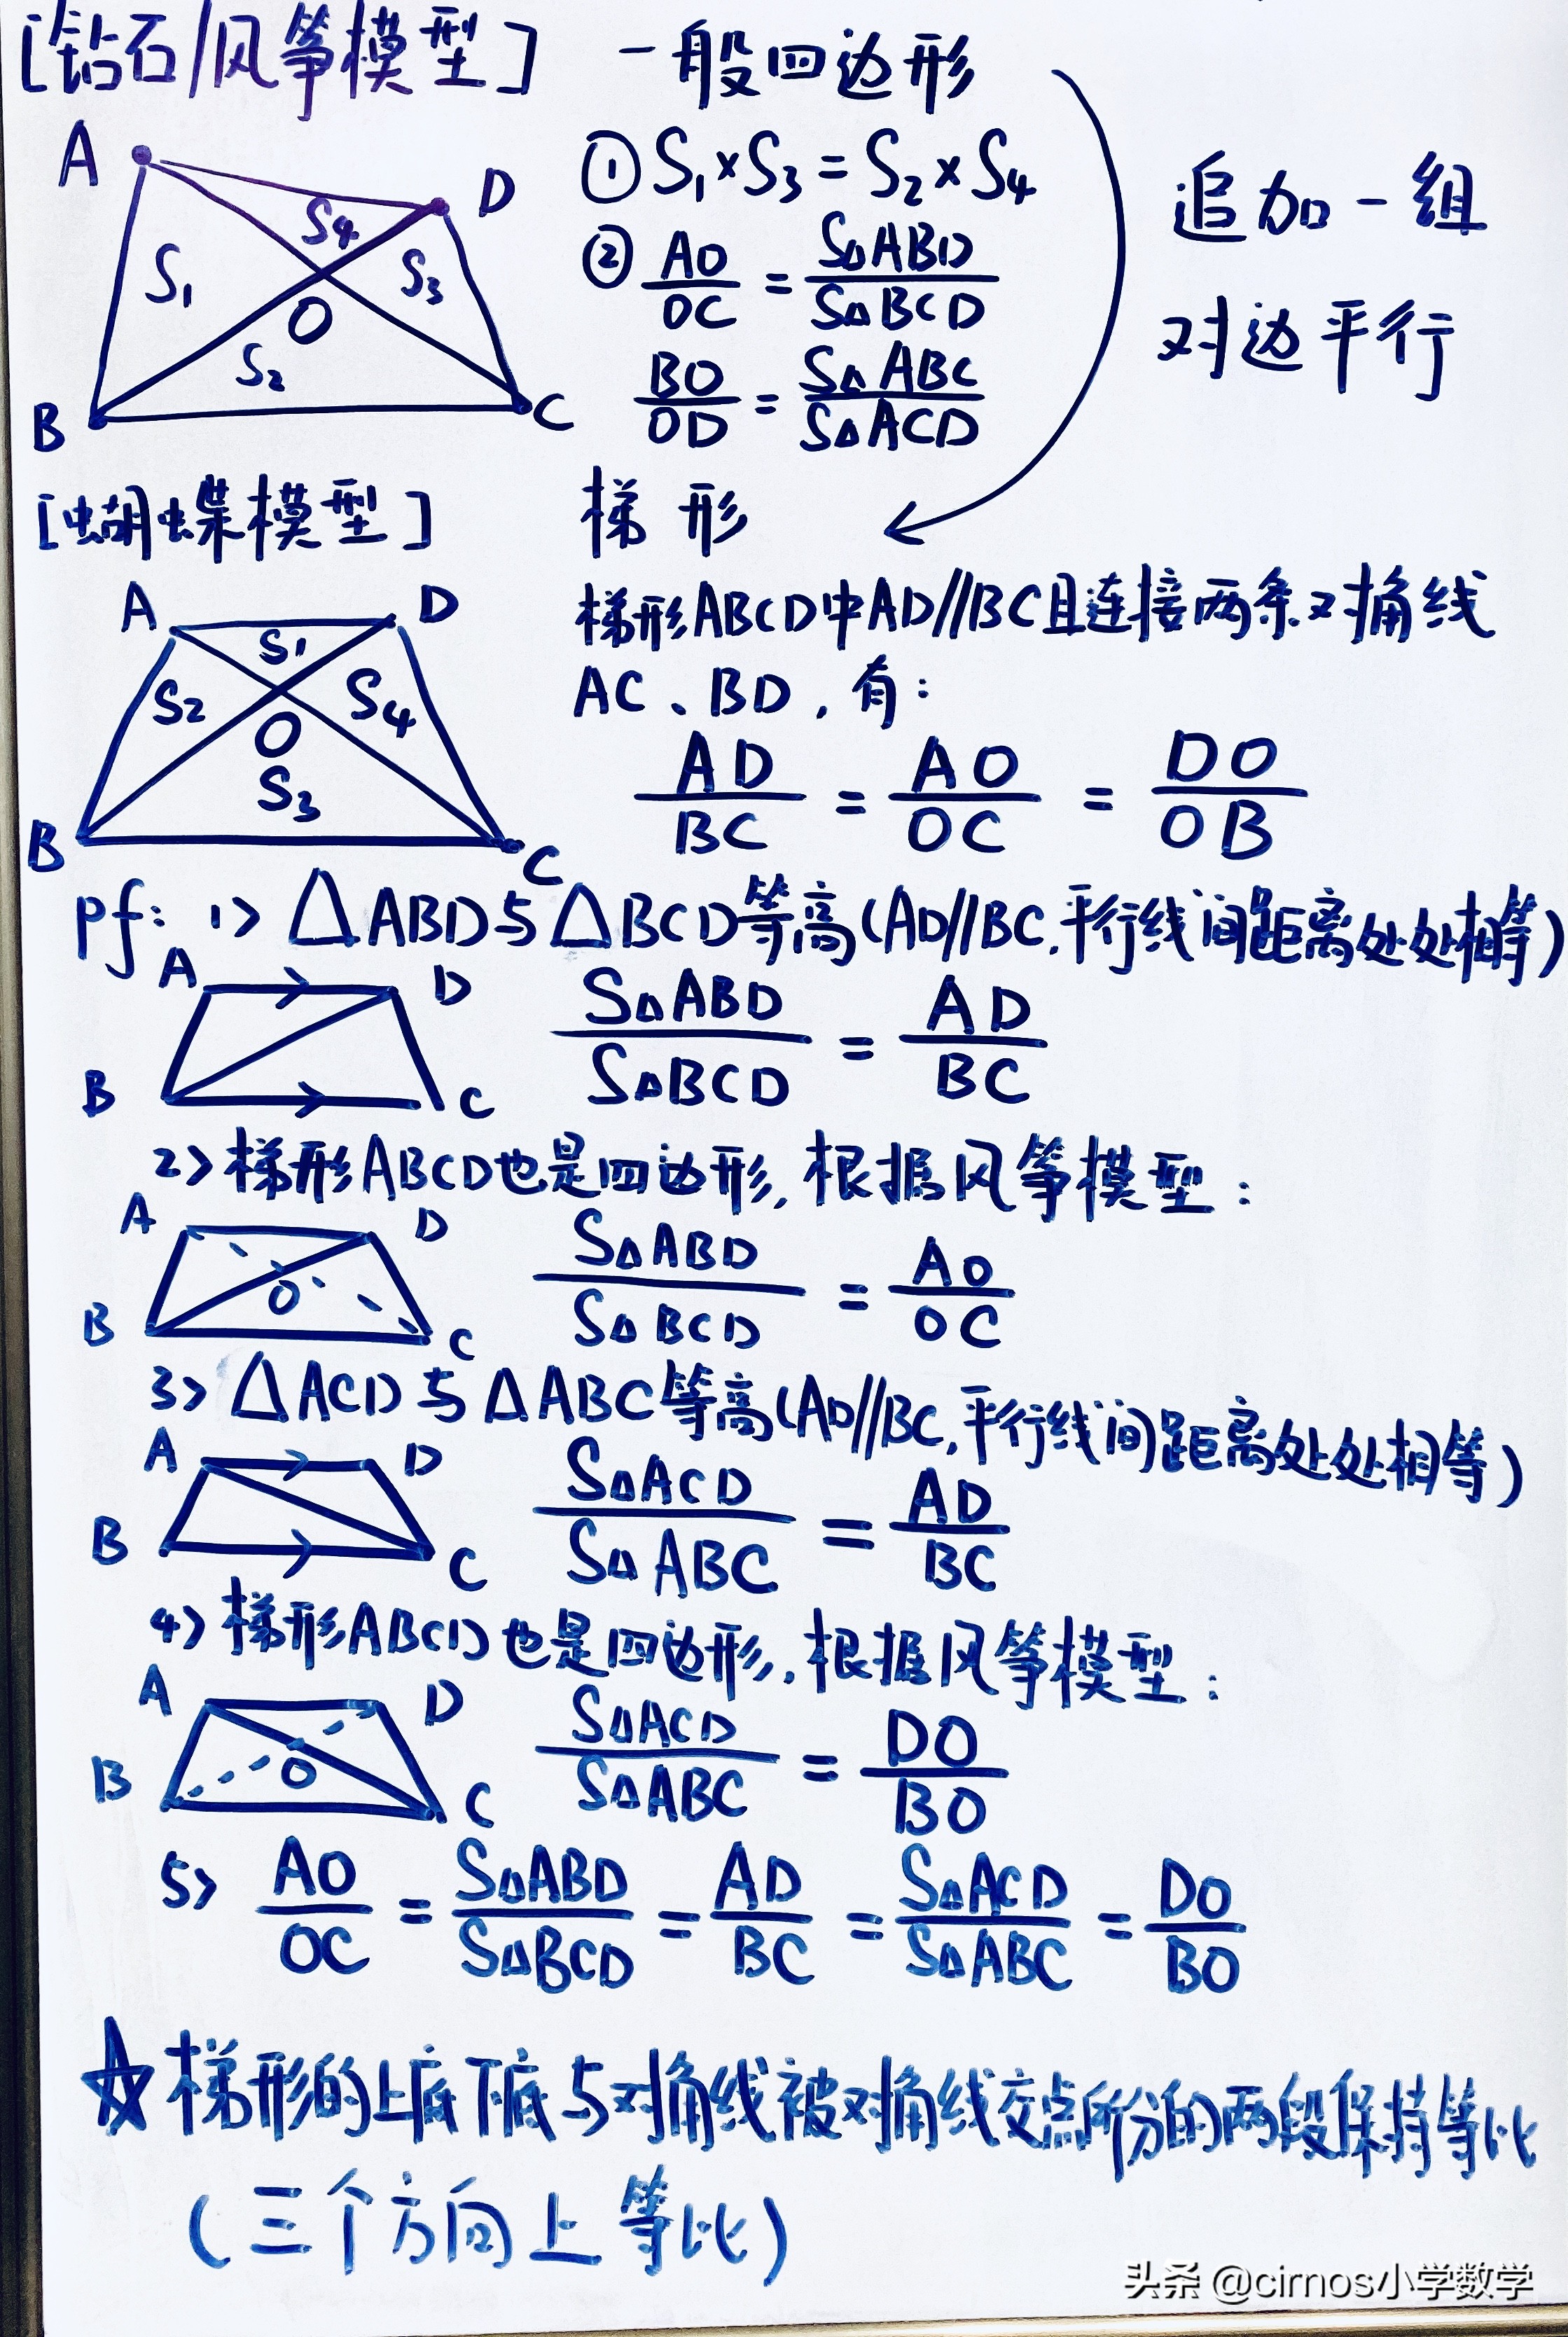 [钻石/风筝模型] 一般四边形
A D S₁ S₄ S₃ S₂ O B C
① S₁×S₃=S₂×S₄
② AO/OC = S△ABD/S△BCD
BO/OD = S△ABC/S△ACD
追加一组
对边平行
[蝴蝶模型] 梯形
A D S₁ S₂ S₄ O S₃ B C
梯形ABCD中AD//BC且连接两条对角线
AC、BD,有:
AD/BC = AO/OC = DO/OB
pf: 1> △ABD与△BCD等高(AD//BC,平行线间距离处处相等)
A D B C
S△ABD/S△BCD = AD/BC
2> 梯形ABCD也是四边形,根据风筝模型:
A D O B C
S△ABD/S△BCD = AO/OC
3> △ACD与△ABC等高(AD//BC,平行线间距离处处相等)
A D B C
S△ACD/S△ABC = AD/BC
4> 梯形ABCD也是四边形,根据风筝模型:
A D O B C
S△ACD/S△ABC = DO/BO
5> AO/OC = S△ABD/S△BCD = AD/BC = S△ACD/S△ABC = DO/BO
☆梯形的上底下底与对角线被对角线交点所分的两段保持等比
(三个方向上等比)
头条 @cirnos小学数学